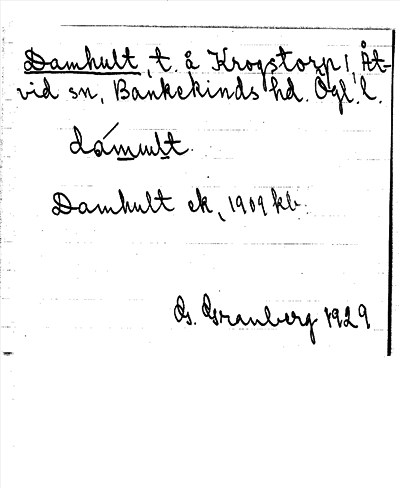 Damhult, t. å Krogstorp 1, Åt-
vid sn, Bankekinds hd. Ögl. l.
dámult.
Damhult ek, 1909 kb.
G. Granberg 1929